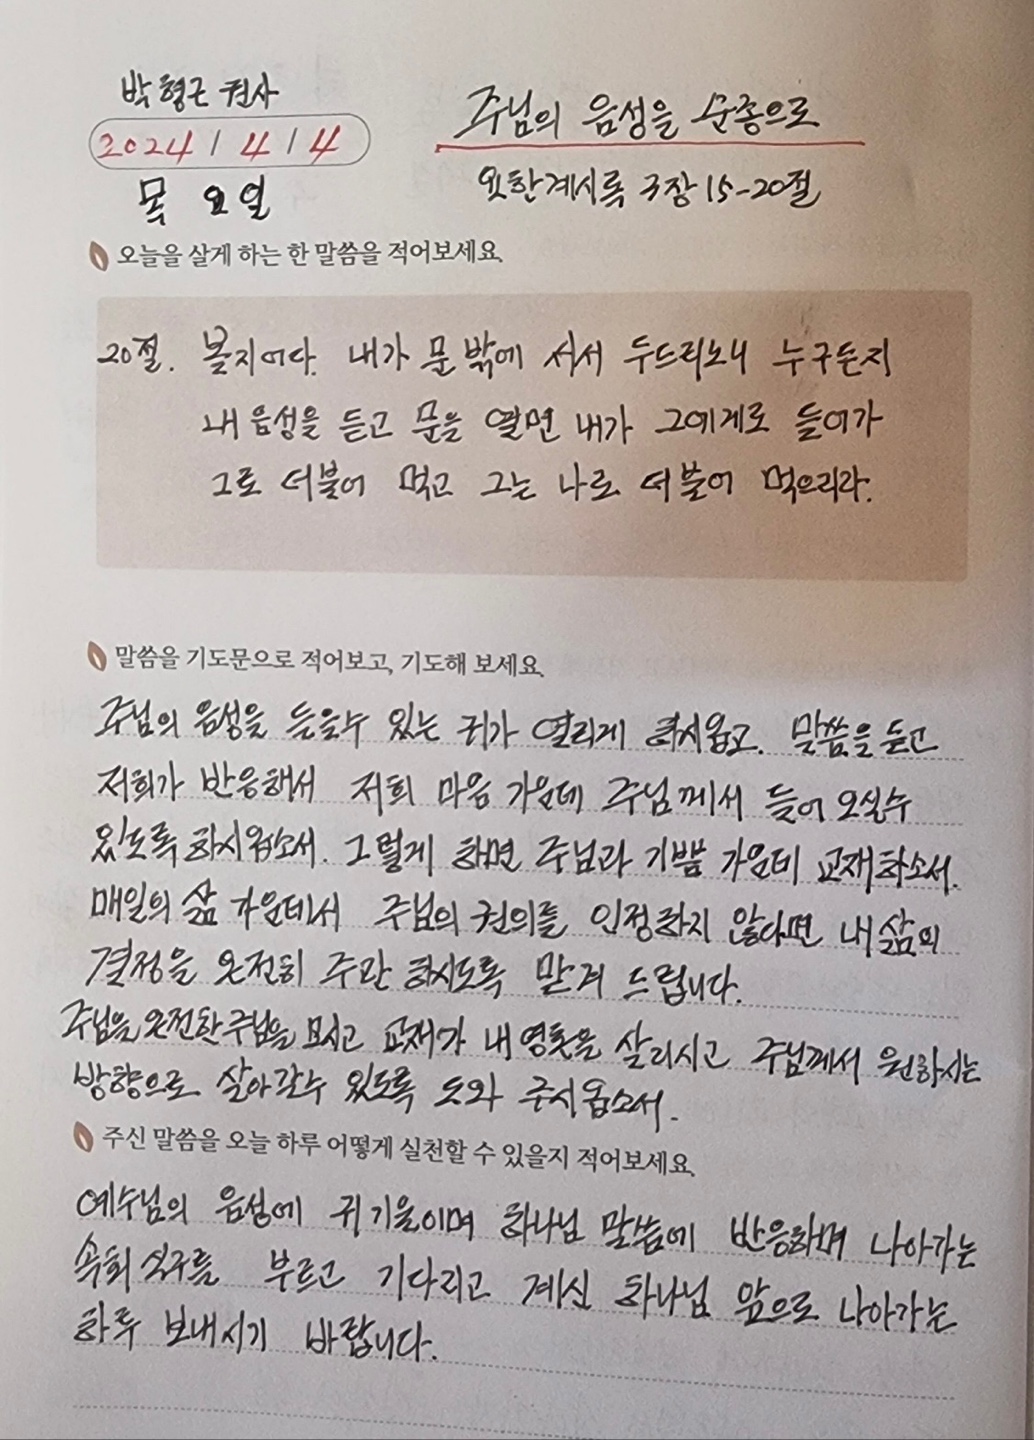 박형근 권사
2024 / 4 / 4
목요일
주님의 음성을 순종으로
요한계시록 3장 15-20절
오늘을 살게 하는 한 말씀을 적어보세요.
20절. 볼지어다. 내가 문 밖에 서서 두드리노니 누구든지
내 음성을 듣고 문을 열면 내가 그에게로 들어가
그로 더불어 먹고 그는 나로 더불어 먹으리라.
말씀을 기도문으로 적어보고, 기도해 보세요.
주님의 음성을 들을수 있는 귀가 열리게 하시옵고. 말씀을 듣고
저희가 반응해서 저희 마음 가운데 주님께서 들어 오실수
있도록 하시옵소서. 그렇게 하면 주님과 기쁨 가운데 교재하소서.
매일의 삶 가운데서 주님의 권의를 인정하지 않다면 내 삶의
결정을 온전히 주관 하시도록 맡겨 드립니다.
주님을 온전한 주님을 모시고 교재가 내 영혼을 살리시고 주님께서 원하시는
방향으로 살아갈수 있도록 도와 주시옵소서.
주신 말씀을 오늘 하루 어떻게 실천할 수 있을지 적어보세요.
예수님의 음성에 귀 기울이며 하나님 말씀에 반응하며 나아가는
속회 식구를 부르고 기다리고 계신 하나님 앞으로 나아가는
하루 보내시기 바랍니다.